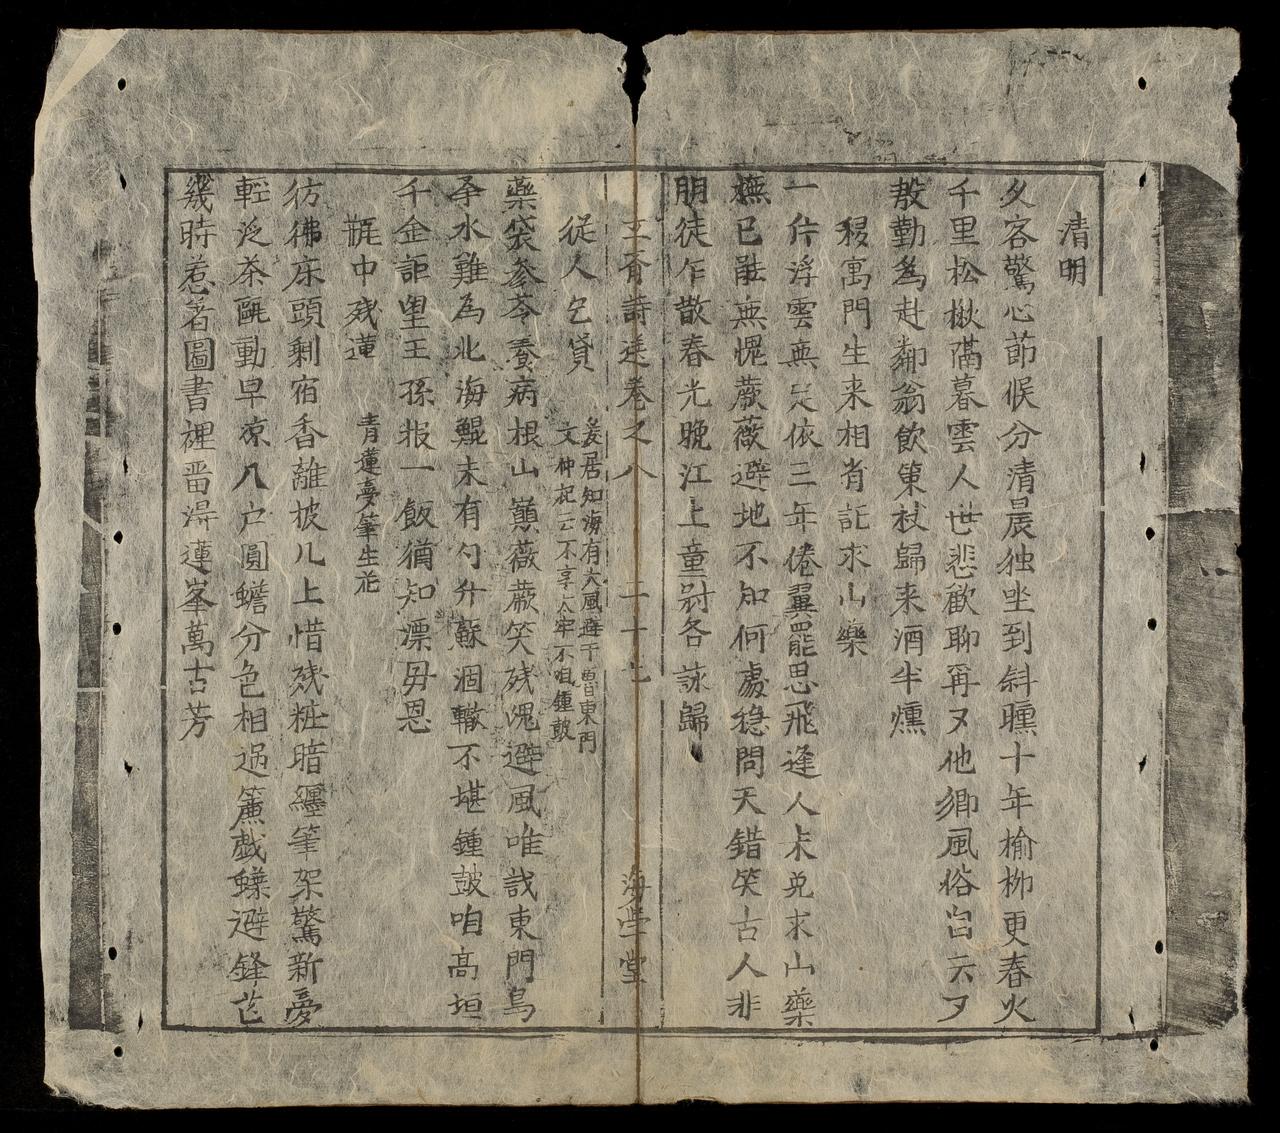 清明
久客驚心節候分清晨独坐到斜曛十年榆柳更春火
千里松楸隔暮雲人世悲歡聊再又他鄉風俗自云又
殷勤爲赴鄰翁飲策杖歸来酒半燻
稷寓門生来相肯託求山藥
一片浮雲無足依三年倦翼罷思飛逢人未免求山藥
撫已能無愧蕨薇避地不知何處穏問天錯笑古人非
朋徒乍散春光晩江上童冠各詠歸
五 詩送卷之八 二十七 海堂
從人乞貸 爰居知海有大風避于曽東門
文仲祀云不享太牢不咱鍾鼓
藥袋參苓養病根山巔薇蕨笑残魂避風唯戠東門鳥
爭水難為北海鯤未有勺升蘇涸轍不堪鍾鼓咱高垣
千金詎望王孫报一飯猶知漂母恩
甁中残蓮 青蓮夢筆生花
彷彿床頭剩宿香離披几上惜残粧暗纒筆架驚新夢
輕泛茶甌動早凉入户圓蟾分色相過簾戯蠊避鋒芒
幾時惹著圖書裡畱淂蓮峯萬古芳